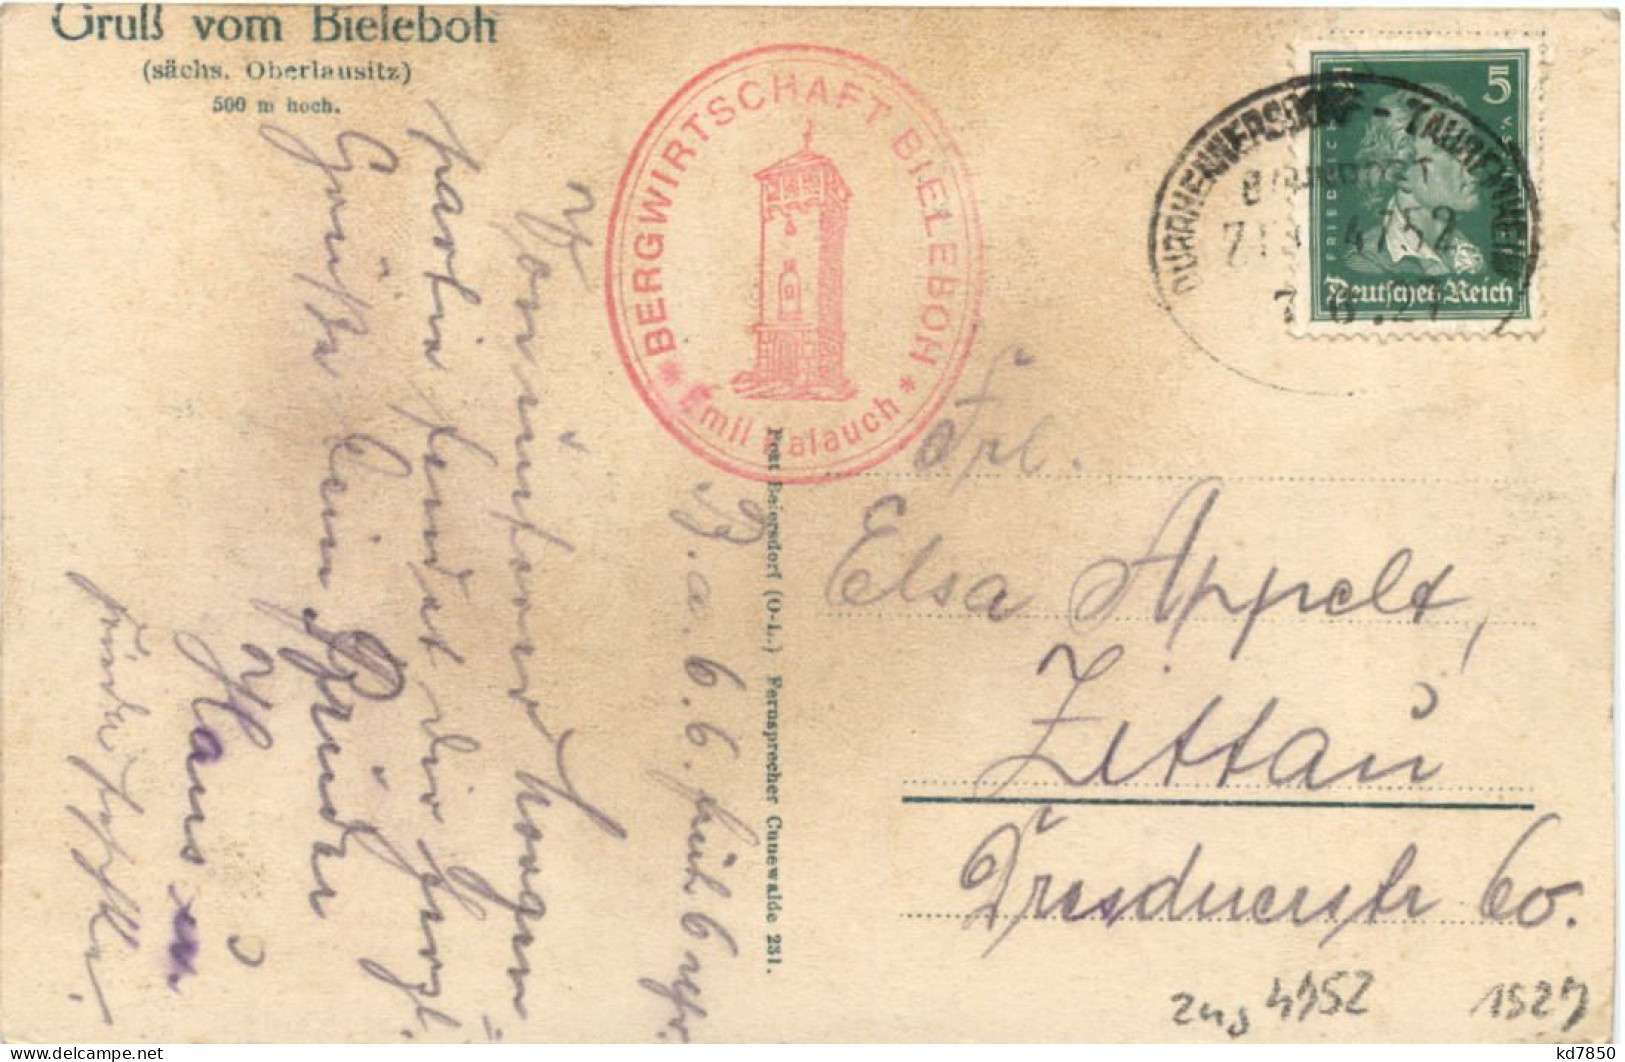 Gruß vom Bieleboh
(sächs. Oberlausitz)
500 m hoch.
BERGWIRTSCHAFT BIELEBOH
* Emil Kalauch *
DÜRRHENNERSDORF - TAUBENHEIM
BAHNPOST
ZUG 4752
7 6.27
5
FRIEDRICH V. S
Deutsches Reich
B. a. 6.6. früh 6 Uhr.
morgen
partie sendet dir herzl.
Grüße Dein Bruder
Hans u.
Post Beiersdorf (O-L.) Fernsprecher Cunewalde 231.
Frl.
Elsa Appelt,
Zittau
Dresdnerstr 60.
Zug 4752
1927
kd7850